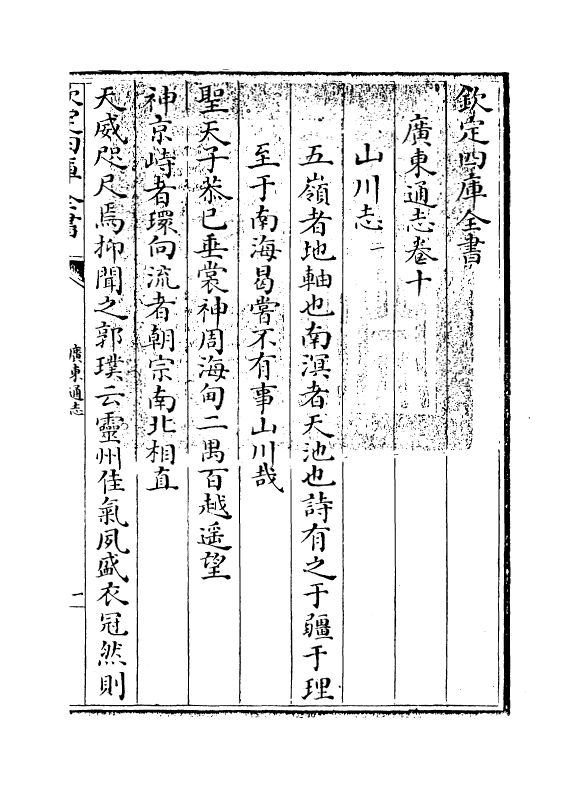 欽定四庫全書
廣東通志卷十
山川志一
五嶺者地軸也南溟者天池也詩有之于疆于理
至于南海曷嘗不有事山川哉
聖天子恭已垂裳神周海甸二禺百越遥望
神京峙者環向流者朝宗南北相直
天威咫尺焉抑聞之郭璞云靈州佳氣夙盛衣冠然則
欽定四庫全書
廣東通志
一